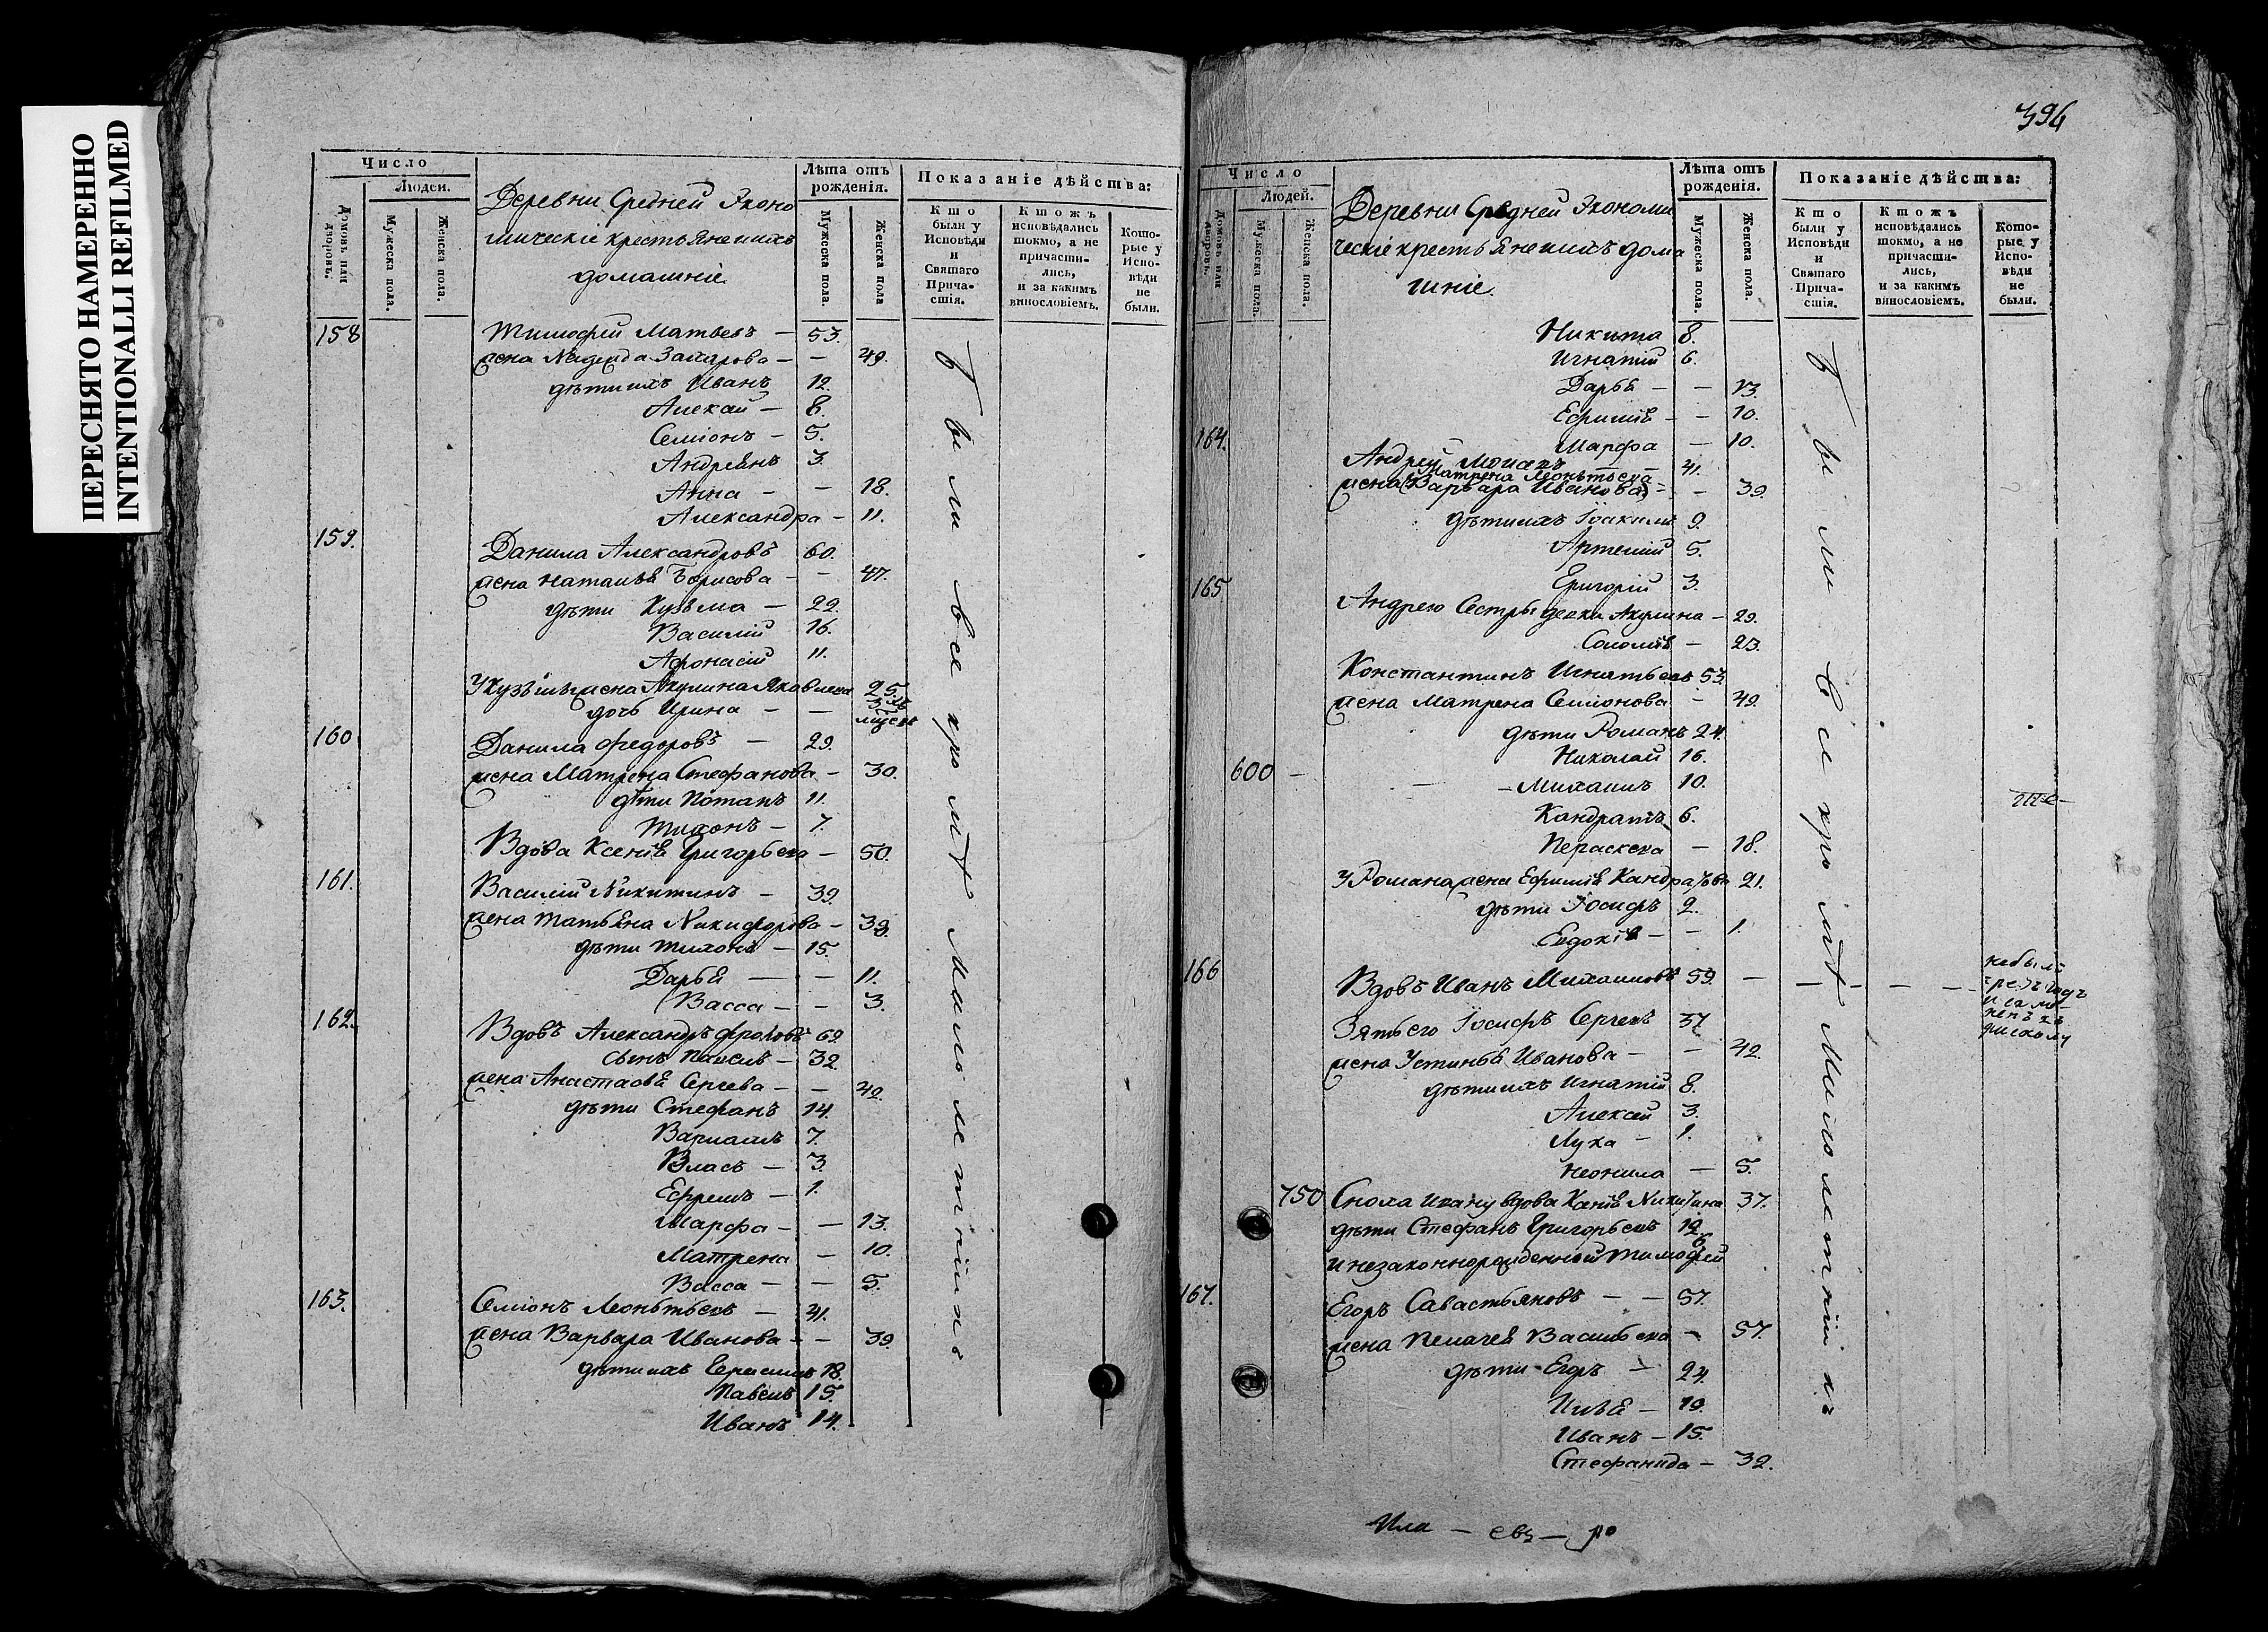 ПЕРЕСНЯТО НАМЕРЕННО
INTENTIONALLI REFILMED
Число
Людей.
Домовъ или дворовъ.
Мужеска пола.
Женска пола.
Деревни Средней Эконо
мическiе крестьяне и ихъ
домашнiе.
Лѣта отъ рожденiя.
Мужеска пола.
Женска пола
Показанiе дѣйства:
Кто были у Исповѣди и Святаго Прича-стiя.
Ктожъ исповѣдались токмо, а не причасти-лись, и за какимъ винословiемъ.
Кото-рые у Испо-вѣди не были.
158 Тимофей Матвеевъ — 53.
жена Надежда Захарова — — 49.
дѣти ихъ Иванъ 12.
Алексей — 8.
Семiонъ — 5.
Андреянъ 3.
Анна — — 18.
Александра — 11.
159. Данила Александровъ 60.
жена Наталья Борисова — — 47.
дѣти Кузьма — 22.
Василiй 16.
Афонасiй 11.
У Кузьмы жена Акулина Яковлева 25.
дочь Ирина — —
160. Данила Федоровъ — 29.
жена Матрена Стефанова — 30.
дѣти Потапъ 11.
Тихонъ — 7.
Вдова Ксенiя Григорьева — 50.
161. Василiй Никитинъ — 39.
жена Татьяна Никифорова — 39.
дѣти Тихонъ — 15.
Дарья — — 11.
Васса — — 3.
162. Вдовъ Александръ Фроловъ 62
сынъ Павелъ — 32.
жена Анастасья Сергева — — 42.
дѣти Стефанъ 14.
Варлаамъ 7.
Власъ — 3.
Ефремъ — 1.
Марфа — — 13.
Матрена — 10.
Васса — — 5.
163. Семiонъ Леонтьевъ — 41.
жена Варвара Иванова — — 39.
дѣти ихъ Герасимъ 18.
Павелъ 15.
Иванъ 14.
Были все кромѣ малолетнiихъ
394
Число
Людей.
Домовъ или дворовъ.
Мужеска пола.
Женска пола.
Деревни Средней Экономи
ческiе крестьяне и ихъ дома
шнiе.
Лѣта отъ рожденiя.
Мужеска пола.
Женска пола.
Показанiе дѣйства:
Кто были у Исповѣди и Святаго Прича-стiя.
Ктожъ исповѣдались токмо, а не причасти-лись, и за какимъ винословiемъ.
Кото-рые у Испо-вѣди не были.
Никита 8.
Игнатiй 6.
Дарья — — 13.
Ефимiя — — 10.
Марфа — 10.
164. Андрей — 41.
Матрена Леонтьева
жена (Варвара Иванова) — — 39.
дѣти ихъ Iоакимъ 9.
Артемiй 5.
Григорiй 3.
165. Андрею Сестры девки Акулина — 29.
Соломiя — 23.
Константинъ Игнатьевъ 53.
жена Матрена Семiонова — 49.
дѣти Романъ 24.
Николай 16.
600 — — — Михаилъ 10.
Кандратъ 6.
Пераскева — 18.
У Романа жена Ефимiя Кандратьева 21.
дѣти Iосифъ 2.
Евдокiя — — 1.
166 Вдовъ Иванъ Михаиловъ 59. — — — — — небылъ
Зять его Iосифъ Сергеевъ 37
жена Устинья Иванова — — 42.
дѣти ихъ Игнатiй 8.
Алексей 3.
Лука — 1.
Неонила — 5.
750 Сноха Ивану вдова Ксенiя Никитина 37.
дѣти Стефанъ Григорьевъ 12
6
и незаконнорожденной Тимофей
167. Егоръ Савастьяновъ — — 57.
жена Пелагея Васильева — 57.
дѣти Егоръ — 24.
Илья — 19.
Иванъ — 15.
Стефанида — 32.
Были все кромѣ малолетнiихъ